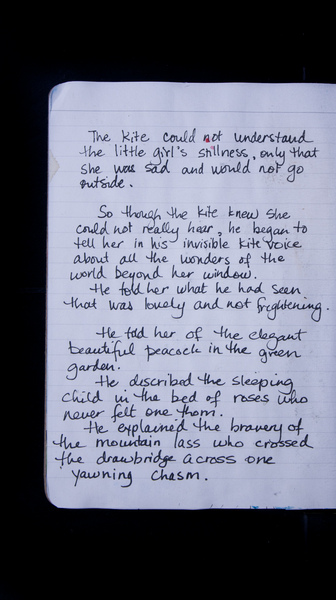 The kite could not understand
the little girl's stillness, only that
she was sad and would not go
outside.
So though the kite knew she
could not really hear, he began to
tell her in his invisible kite voice
about all the wonders of the
world beyond her window.
He told her what he had seen
that was lovely and not frightening.
He told her of the elegant
beautiful peacock in the green
garden.
He described the sleeping
child in the bed of roses who
never felt one thorn.
He explained the bravery of
the mountain lass who crossed
the drawbridge across one
yawning chasm.